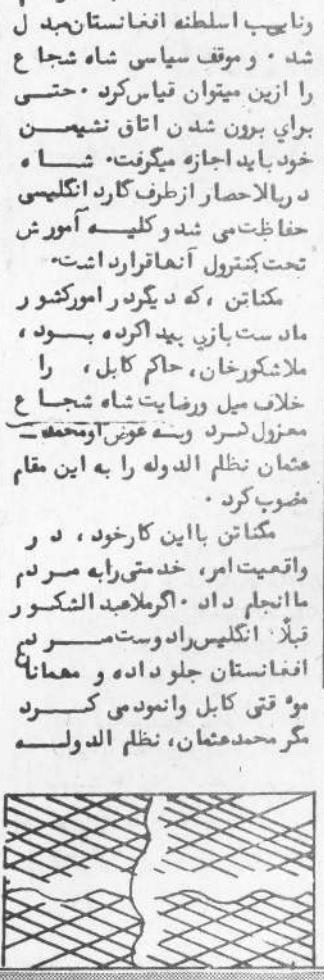 ونایب اسلطنه افغانستان مبدل
شد . و موقف سیاسی شاه شجاع
را ازین میتوان قیاس کرد . حتی
برای برون شدن اتاق نشیمن
خود باید اجازه میگرفت. شاه
دربالاحصار ازطرف گارد انگلیسی
حفاظت می شد و کلیه آمورش
تحت کنترول آنها قرارد اشت.
مکناتن ، که دیگر در امور کشور
ما دست بازی پیدا کرده بود ،
ملا شکور خان، حاکم کابل ، را
خلاف میل ورضایت شاه شجاع
معزول کرد وبه عوض او محمد
عثمان نظلم الدوله را به این مقام
منصوب کرد .
مگناتن با این کار خود ، در
واقعیت امر، خدمتی را به مردم
ما انجام داد . اگر ملاعبد الشکور
قبلاً انگلیس را دوست مردم
افغانستان جلوداده و مهمانان
موقتی کابل وانمود می کرد
مگر محمد عثمان، نظلم الدوله